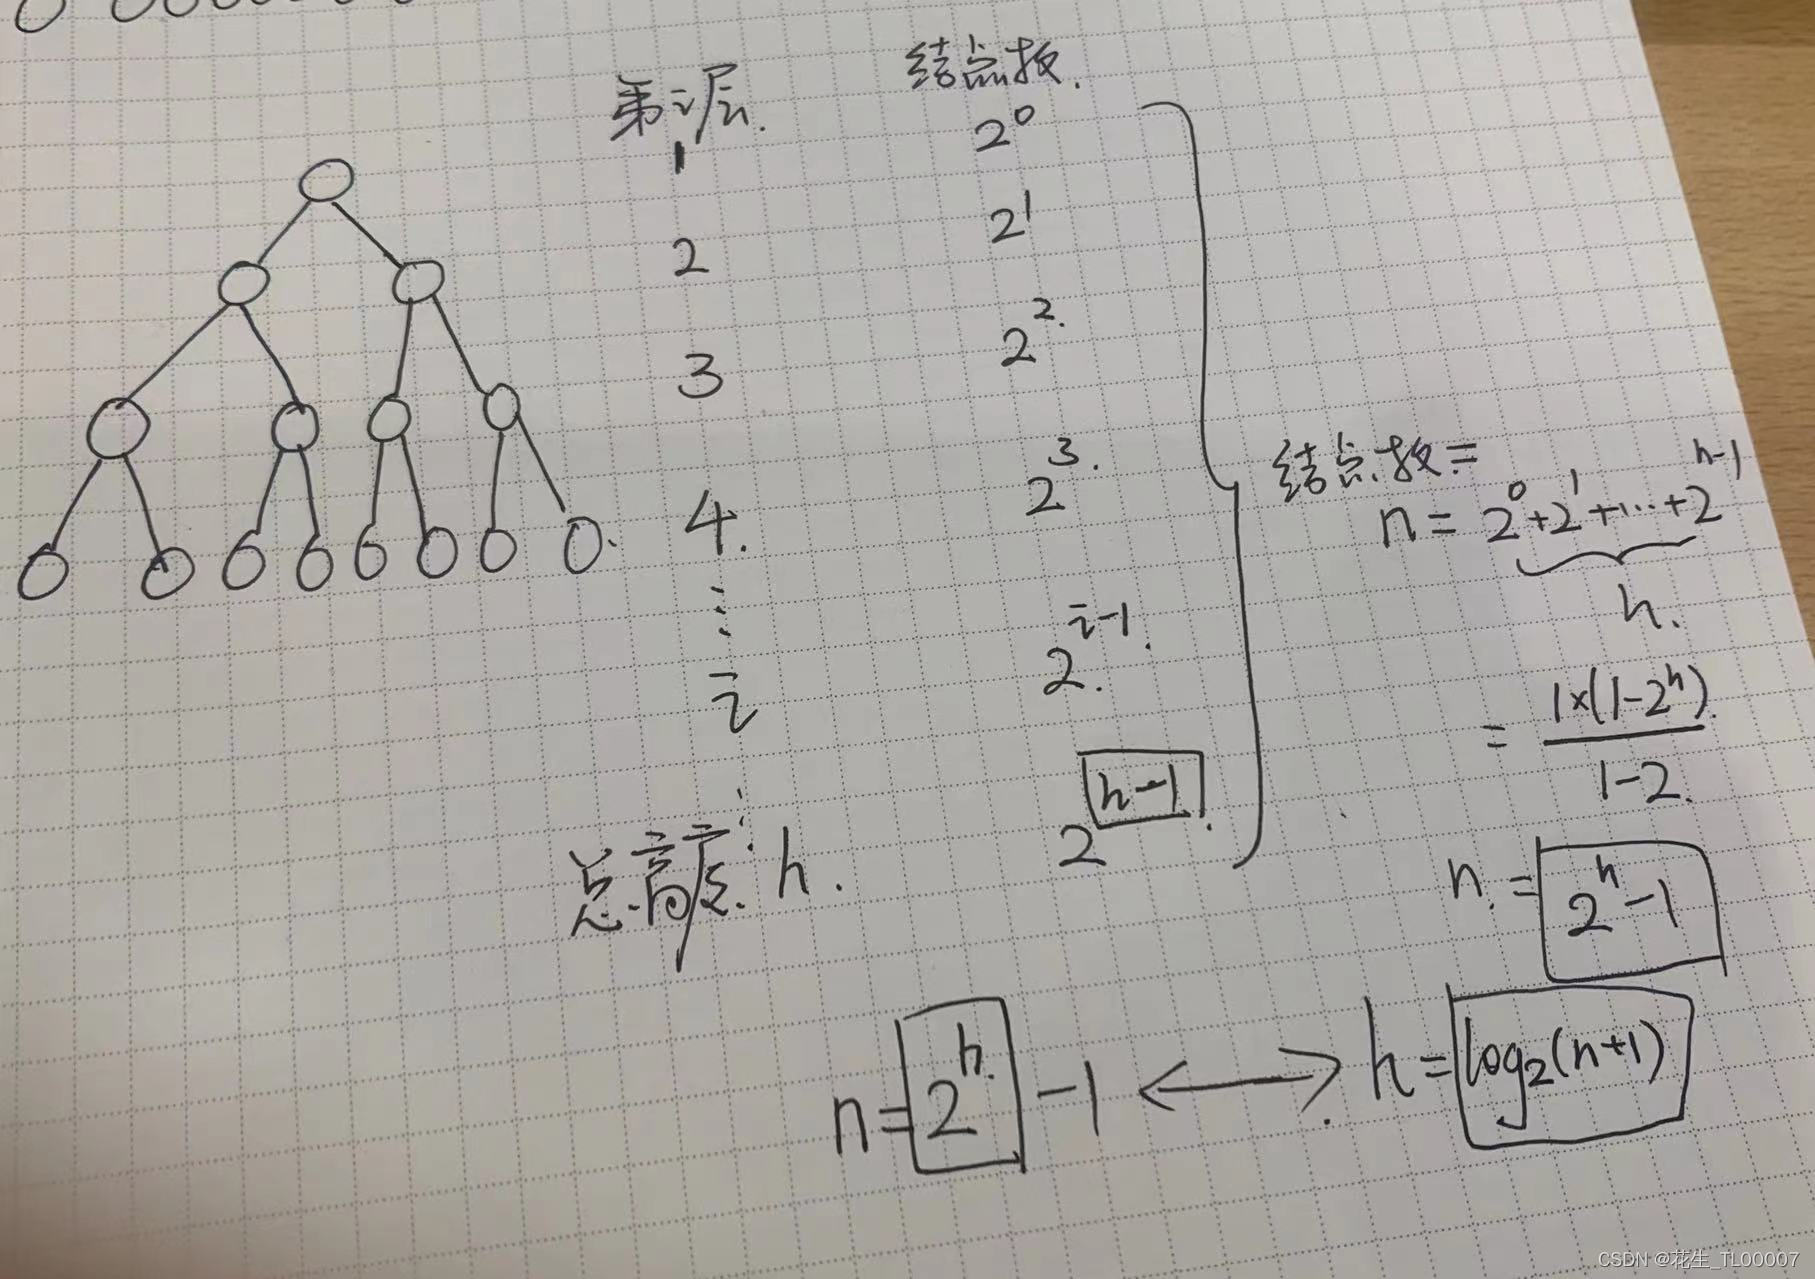 第i层. 结点数.
1 2^0
2 2^1
3 2^2.
4. 2^3.
⋮
i 2^{i-1}.
⋮
总高度: h. 2^{h-1}.
结点数=
n = 2^0+2^1+...+2^{h-1}
h.
= \frac{1×(1-2^h)}{1-2}.
n. = 2^h-1
n=2^h.-1 ⟷ h=log₂(n+1)
CSDN @花生_TL00007